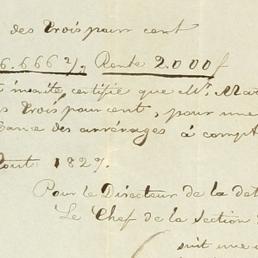 des trois pour cent
6.666 2/3. Rente 2.000 f
inscrite, certifie que Mr. Mar
s trois pour cent, pour une
sance des arrérages à compt
oute 1827.
Pour le Directeur de la det
Le Chef de la section
suit une